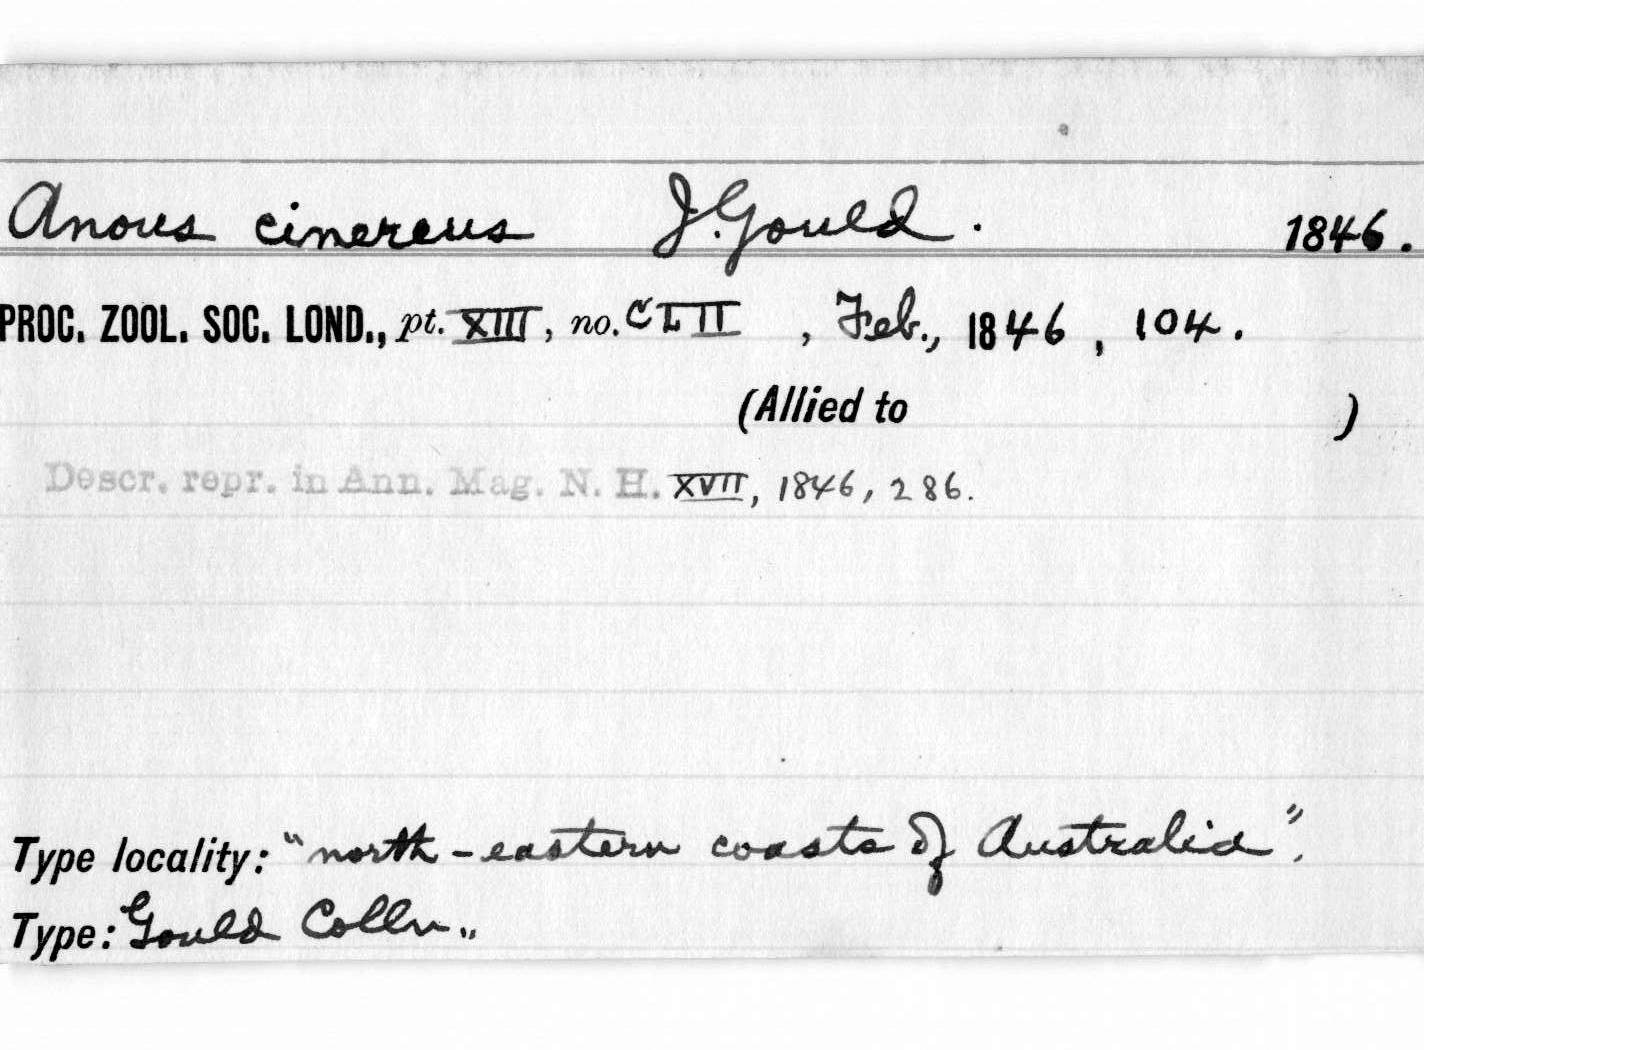 Anous cinereus J. Gould. 1846.
PROC. ZOOL. SOC. LOND., pt. XIII, no. CLII , Feb., 1846 , 104.
(Allied to )
Descr. repr. in Ann. Mag. N. H. XVII, 1846, 286.
Type locality: "north-eastern coasts of Australia".
Type: Gould Colln.,